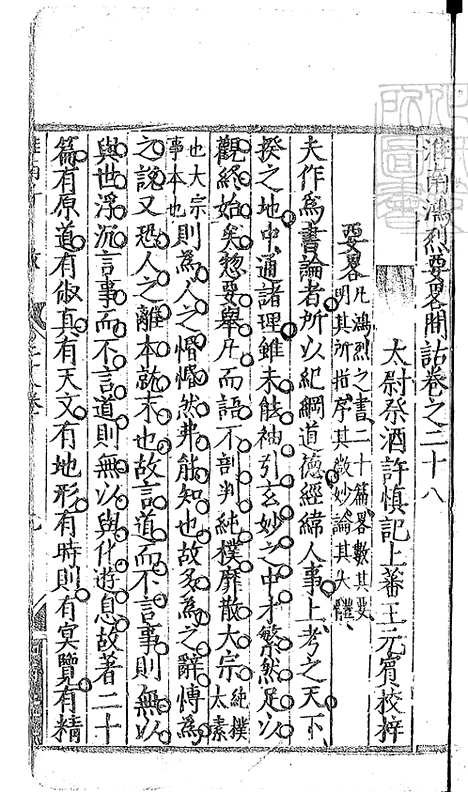 淮南鴻烈要畧間詁卷之二十八
太尉祭酒許慎記上蕃王元賓校梓
要畧凡鴻烈之書二十篇畧數其要明其所指序其微妙論其大體
夫作為書論者所以紀綱道德經緯人事上考之天下
揆之地中通諸理雖未能袖引玄妙之中才繁然足以
觀終始矣惣要舉凡而語不剖判純樸靡散大宗純樸太素
也大宗事本也則為人之惛惛然弗能知也故多為之辭慱為
之說又恐人之離本就末也故言道而不言事則無以
與世浮沉言事而不言道則無以與化遊息故著二十
篇有原道有俶真有天文有地形有時則有冥覽有精